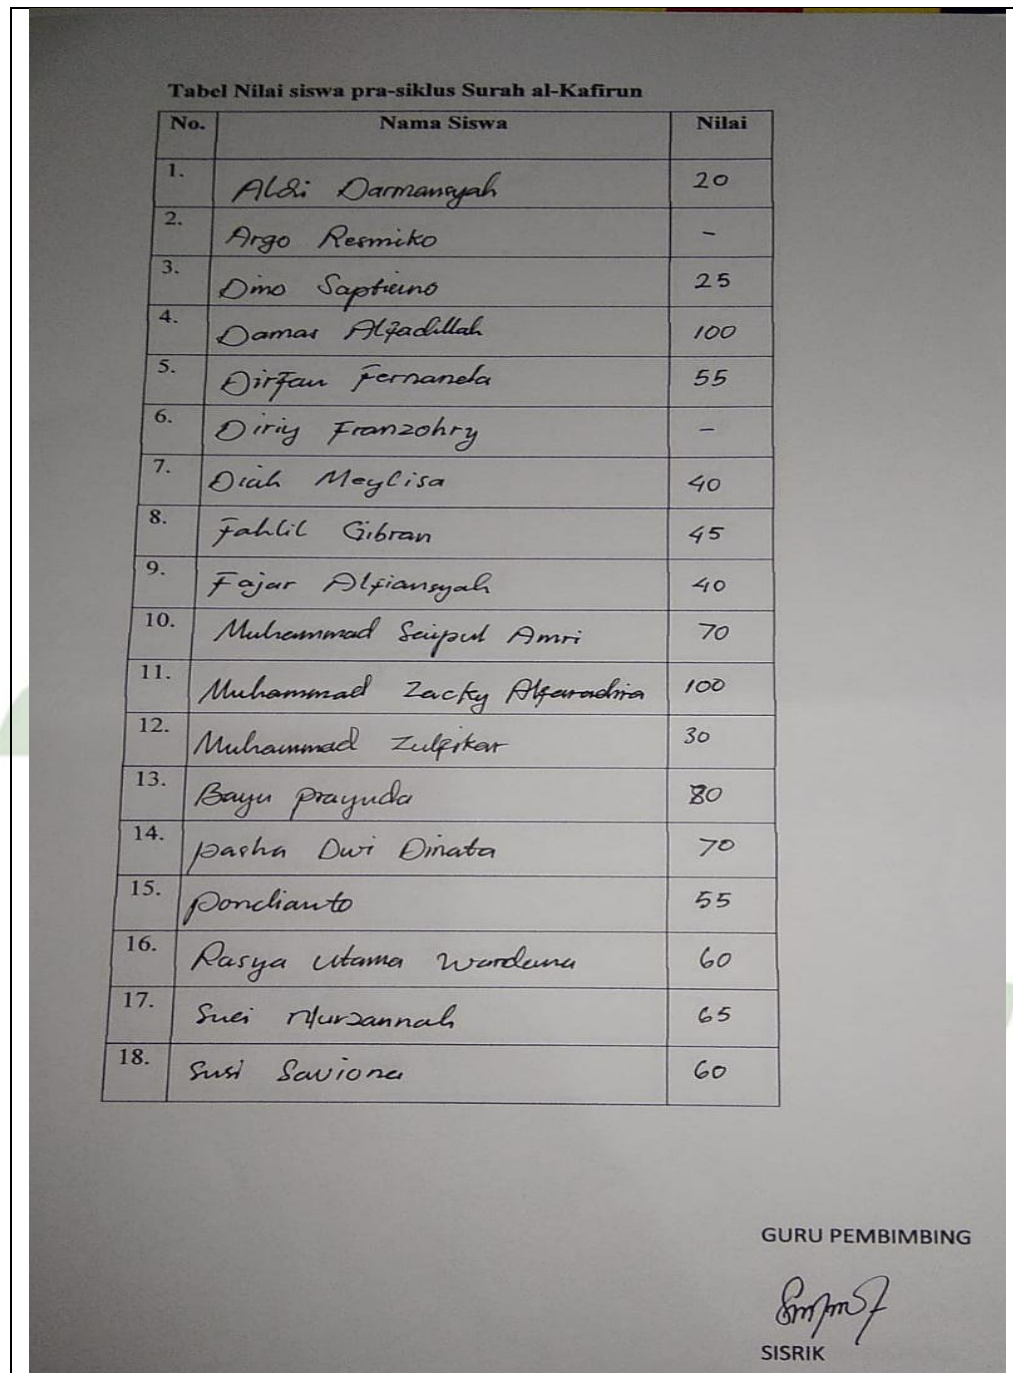 Tabel Nilai siswa pra-siklus Surah al-Kafirun
No. Nama Siswa Nilai
1. Aldi Darmansyah 20
2. Argo Resmiko -
3. Dino Saptieno 25
4. Damar Alfadillah 100
5. Dirfan Fernanda 55
6. Diriy Franzohry -
7. Diah Meylisa 40
8. Fahlil Gibran 45
9. Fajar Alfiansyah 40
10. Muhammad Saipul Amri 70
11. Muhammad Zacky Alfaradhia 100
12. Muhammad Zulfikar 30
13. Bayu prayuda 80
14. pasha Dwi Dinata 70
15. pondianto 55
16. Rasya Utama Wardana 60
17. Suci Nurjannah 65
18. Susi Saviona 60
GURU PEMBIMBING
SISRIK